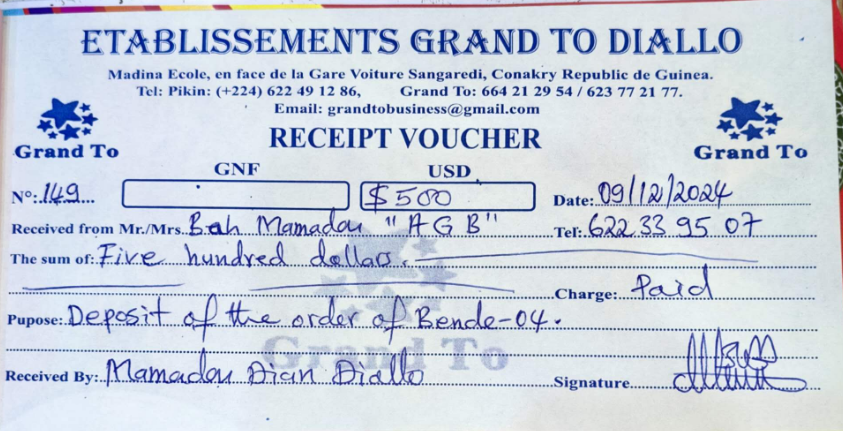 ETABLISSEMENTS GRAND TO DIALLO
Madina Ecole, en face de la Gare Voiture Sangaredi, Conakry Republic de Guinea.
Tel: Pikin: (+224) 622 49 12 86, Grand To: 664 21 29 54 / 623 77 21 77.
Email: grandtobusiness@gmail.com
Grand To RECEIPT VOUCHER Grand To
GNF USD
Nº: 149 $500 Date: 09/12/2024
Received from Mr./Mrs. Bah Mamadou "AGB" Tel: 622 33 95 07
The sum of: Five hundred dollars.
Charge: Paid
Pupose: Deposit of the order of Bende-04.
Grand To
Received By: Mamadou Dian Diallo Signature